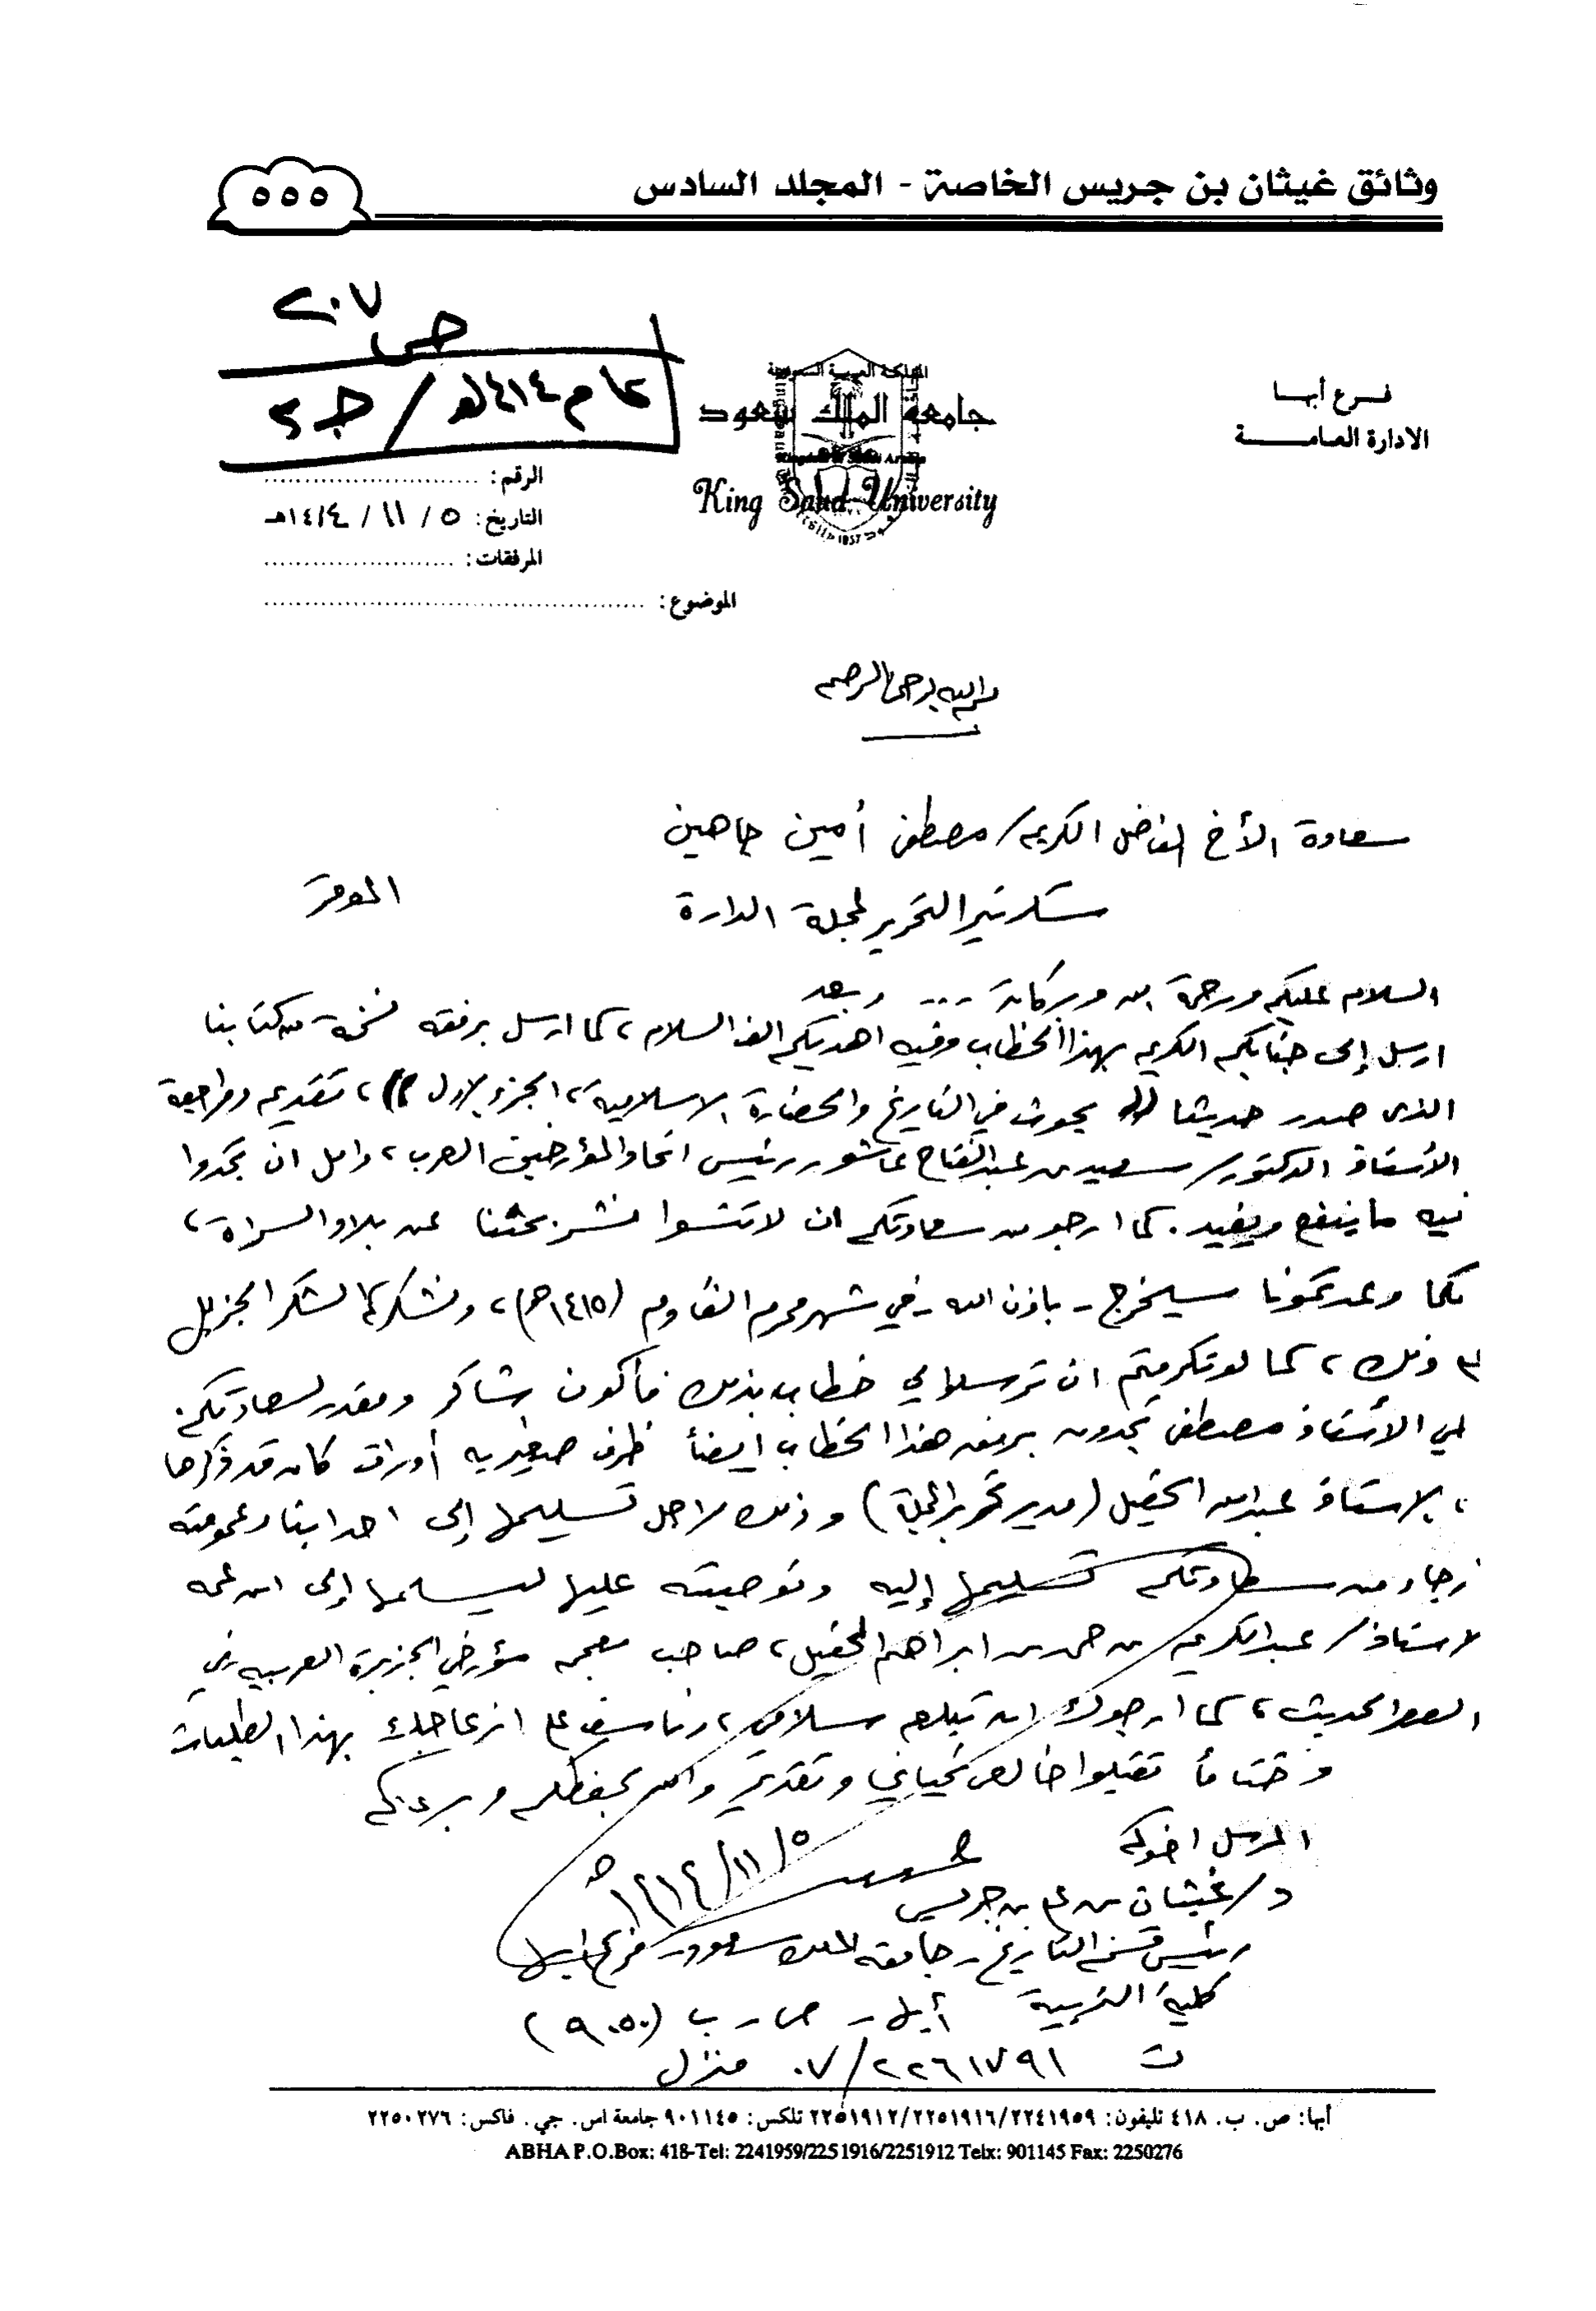 وثائق غيثان بن جريس الخاصة - المجلد السادس
٥٥٥
ص ٢٠٧
عام ١٤١٤هـ / جـ ٢
فرع أبها
الادارة العامة
المملكة العربية السعودية
جامعة الملك سعود
King Saud University
1957
الرقم:
التاريخ: ٥ / ١١ / ١٤١٤هـ
المرفقات:
الموضوع:
بسم الله الرحمن الرحيم
سعادة الأخ الفاضل الكريم / مصطفى أمين جاهين
سكرتير التحرير لمجلة الدارة
الموقر
السلام عليكم ورحمة الله وبركاته ... وبعد
ارسل إلى جنابكم الكريم بهذا الخطاب وفيه اهديكم الف السلام، كما ارسل برفقه نسخة من كتابنا
الذي صدر حديثا (( بحوث في التاريخ والحضارة الاسلامية، الجزء الأول ))، تقديم ومراجعة
الأستاذ الدكتور/ سعيد بن عبدالفتاح عاشور رئيس اتحاد المؤرخين العرب، وامل ان تجدوا
فيه ما ينفع ويفيد. كما ارجو من سعادتكم ان لا تنسوا نشر بحثنا عن بلاد السراة،
فكما وعدتمونا سيخرج - باذن الله - في شهر محرم القادم (١٤١٥هـ)، ونشكركم الشكر الجزيل
على ذلك، كما لو تكرمتم ان ترسلوا لي خطاب بذلك فأكون شاكر ومقدر لسعادتكم.
الأستاذ مصطفى تجدون برفق هذا الخطاب ايضاً ظرف صغير به أوراق كان قد ذكرها
لي الاستاذ عبدالله الحقيل (مدير تحرير المجلة) وذلك لاجل تسليمها إلى احد ابناء عمومته
رجاء من سعادتكم تسليمها إليه وتوصيته عليها ليسلمها إلى ابن عمه
الاستاذ / عبدالكريم بن حمد بن ابراهيم الحقيل، صاحب معجم مؤرخي الجزيرة العربية في
العصر الحديث، كما ارجوك ان تبلغه سلامي، وناسف على ازعاجك بهذا الطلبات
وختاماً تقبلوا خالص تحياتي وتقديري والله يحفظكم ويرعاكم
المرسل اخوكم
د/ غيثان بن علي بن جريس
١٤١٤/١١/٥هـ
رئيس قسم التاريخ - جامعة الملك سعود - فرع ابها
كلية التربية أبها - ص . ب (٩٠٥٠)
ت ٠٧/٢٢٦١٧٩١ منزل
أبها: ص. ب. ٤١٨ تليفون: ٢٢٤١٩٥٩/٢٢٥١٩١٦/٢٢٥١٩١٢ تلكس: ٩٠١١٤٥ جامعة اس. جي. فاكس: ٢٢٥٠٢٧٦
ABHA P.O.Box: 418-Tel: 2241959/2251916/2251912 Telx: 901145 Fax: 2250276